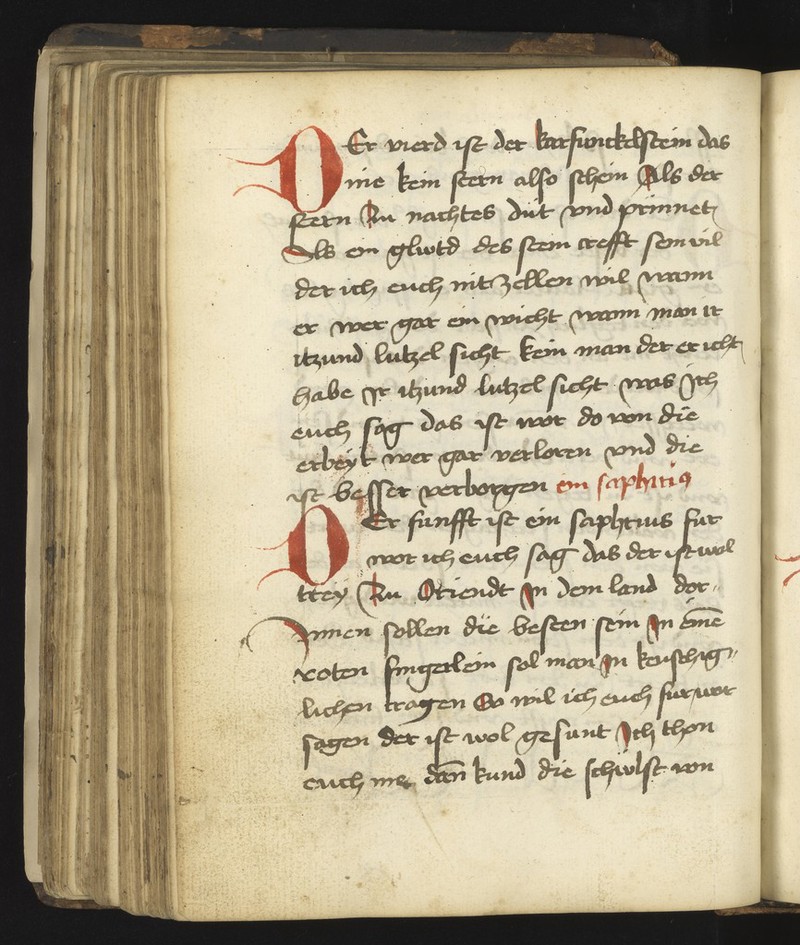 DEr vierd ist der karfunckelstein das
nie kein stern also schein Als der
stern Zu nachtes dut vnd prinnet
Als ein glwtd des stein crefft sein vil
der ich euch nit zellen wil wann
er wer gar ein wicht wann man ir
itzund lutzel sicht kein man der er icht
habe Ir itzund lutzel sicht was Ich
euch sag das ist wor do von die
erbeyt wer gar verloren vnd die
ist besser verborgen ein saphirig
DEr funfft ist ein saphirus fur
wor ich euch sag das der ist wol
trey Zu Oriendt In dem land dor„
Innen sollen die besten sein In eine
roten fingerlein sol man In keuschig„
lichen tragen So wil ich euch fur wor
sagen der ist wol gesunt Ich thon
euch me dan kund die schwlst von